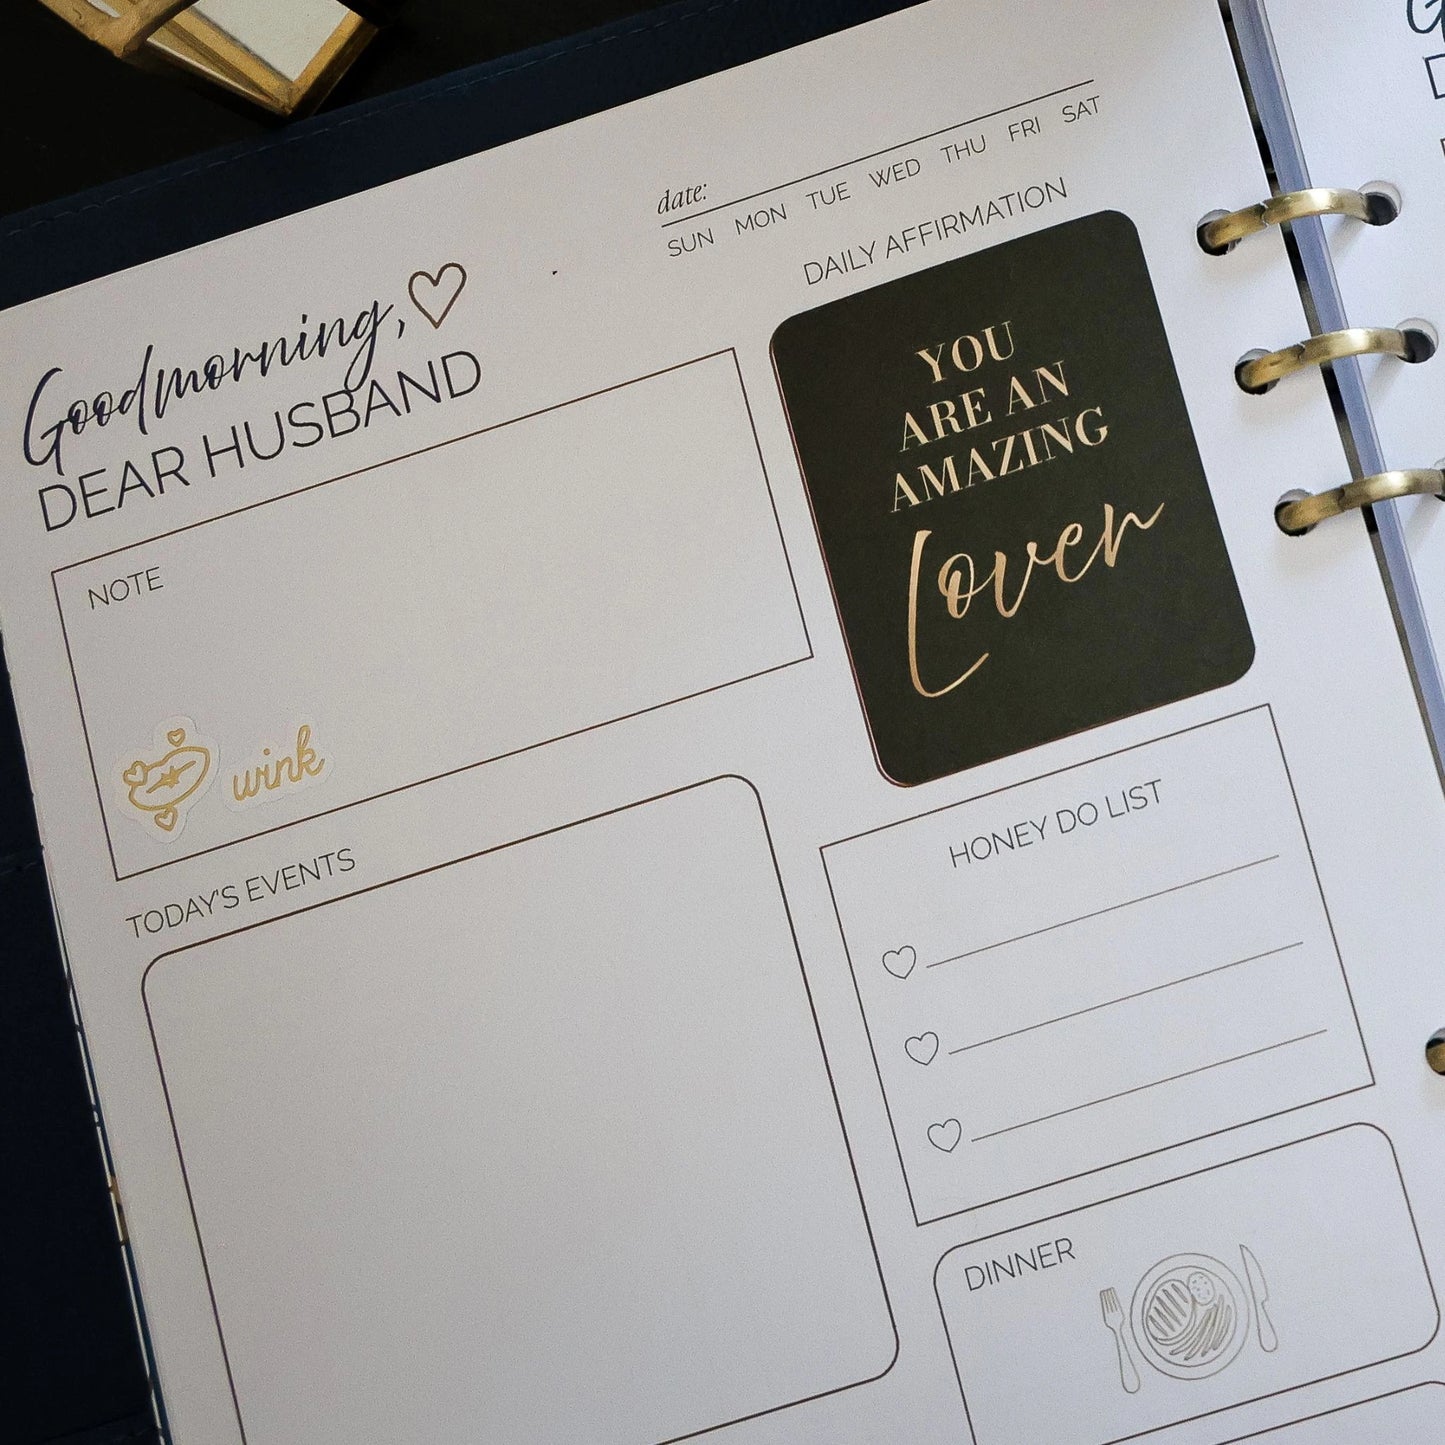 date:
SUN MON TUE WED THU FRI SAT
Goodmorning,
DEAR HUSBAND
DAILY AFFIRMATION
YOU
ARE AN
AMAZING
Lover
NOTE
wink
TODAY'S EVENTS
HONEY DO LIST
DINNER